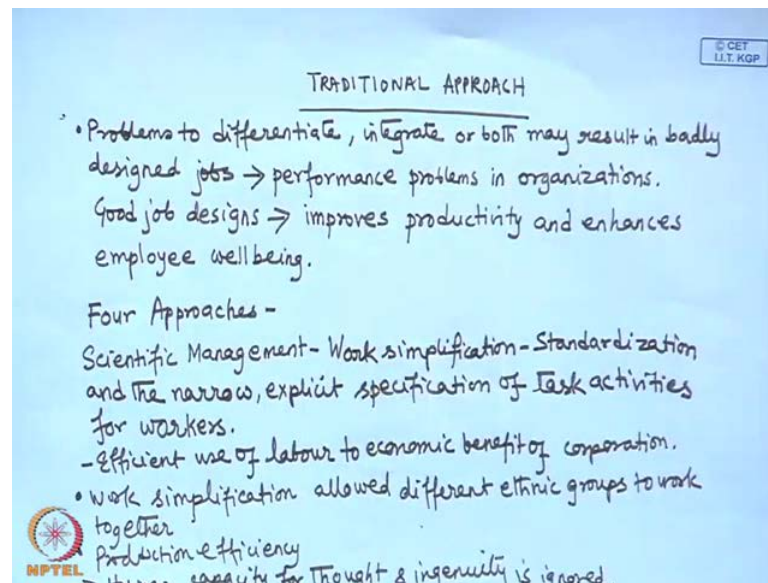 © CET
I.I.T. KGP
TRADITIONAL APPROACH
• Problems to differentiate, integrate or both may result in badly
designed jobs → performance problems in organizations.
Good job designs → improves productivity and enhances
employee wellbeing.
Four Approaches -
Scientific Management - Work simplification - Standardization
and the narrow, explicit specification of task activities
for workers.
- Efficient use of labour to economic benefit of corporation.
• Work simplification allowed different ethnic groups to work
together
Production efficiency
capacity for thought & ingenuity is ignored
NPTEL